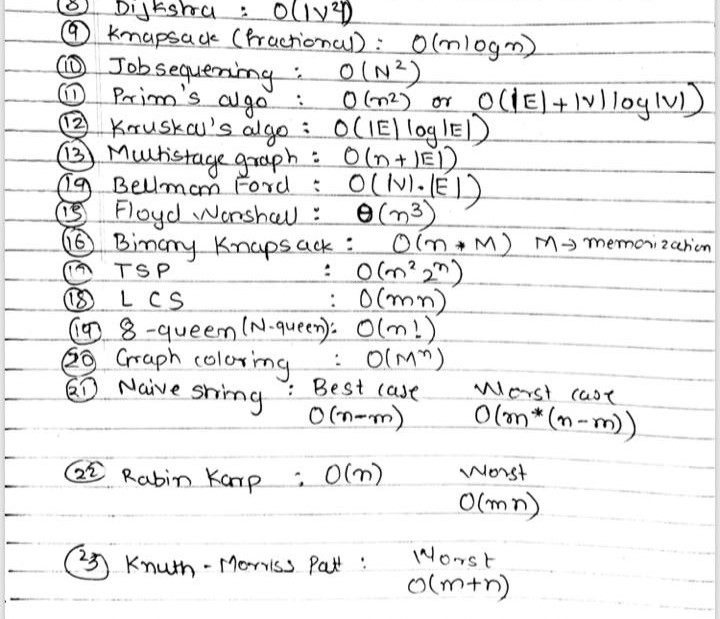 ⑧ Dijkshra : O(|V²|)
⑨ Knapsack (fractional) : O(nlogn)
⑩ Job sequening : O(N²)
⑪ Prim's algo : O(n²) or O(|E|+|V|log|V|)
⑫ Kruskal's algo : O(|E|log|E|)
⑬ Multistage graph : O(n+|E|)
⑭ Bellman Ford : O(|V|.|E|)
⑮ Floyd Warshall : θ(n³)
⑯ Binary Knapsack : O(n*M) M→memorization
⑰ TSP : O(n²2ⁿ)
⑱ LCS : O(mn)
⑲ 8-queen(N-queen): O(n!)
⑳ Graph coloring : O(Mⁿ)
㉑ Naive string : Best case Worst case
O(n-m) O(m*(n-m))
㉒ Rabin Karp : O(n) Worst
O(mn)
㉓ Knuth-Morriss Patt : Worst
O(m+n)